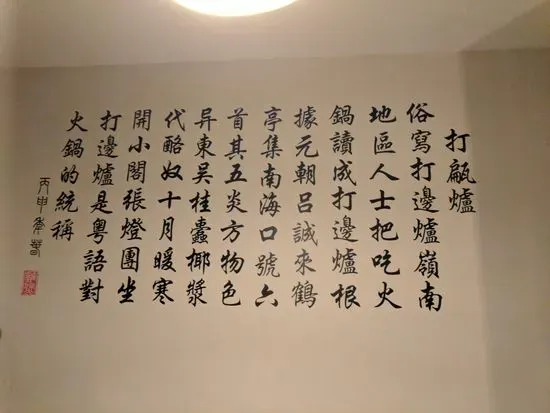 打甂爐
俗寫打邊爐嶺南
地區人士把吃火
鍋讀成打邊爐根
據元朝呂誠來鶴
亭集南海口號六
首其五炎方物色
异東吳桂蠹揶漿
代酪奴十月暖寒
開小閣張燈團坐
打邊爐是粵語對
火鍋的統稱
丙申